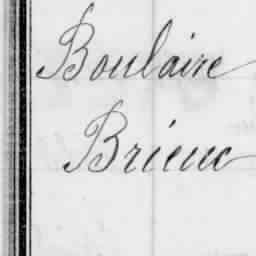 Boulaire
Brieuc